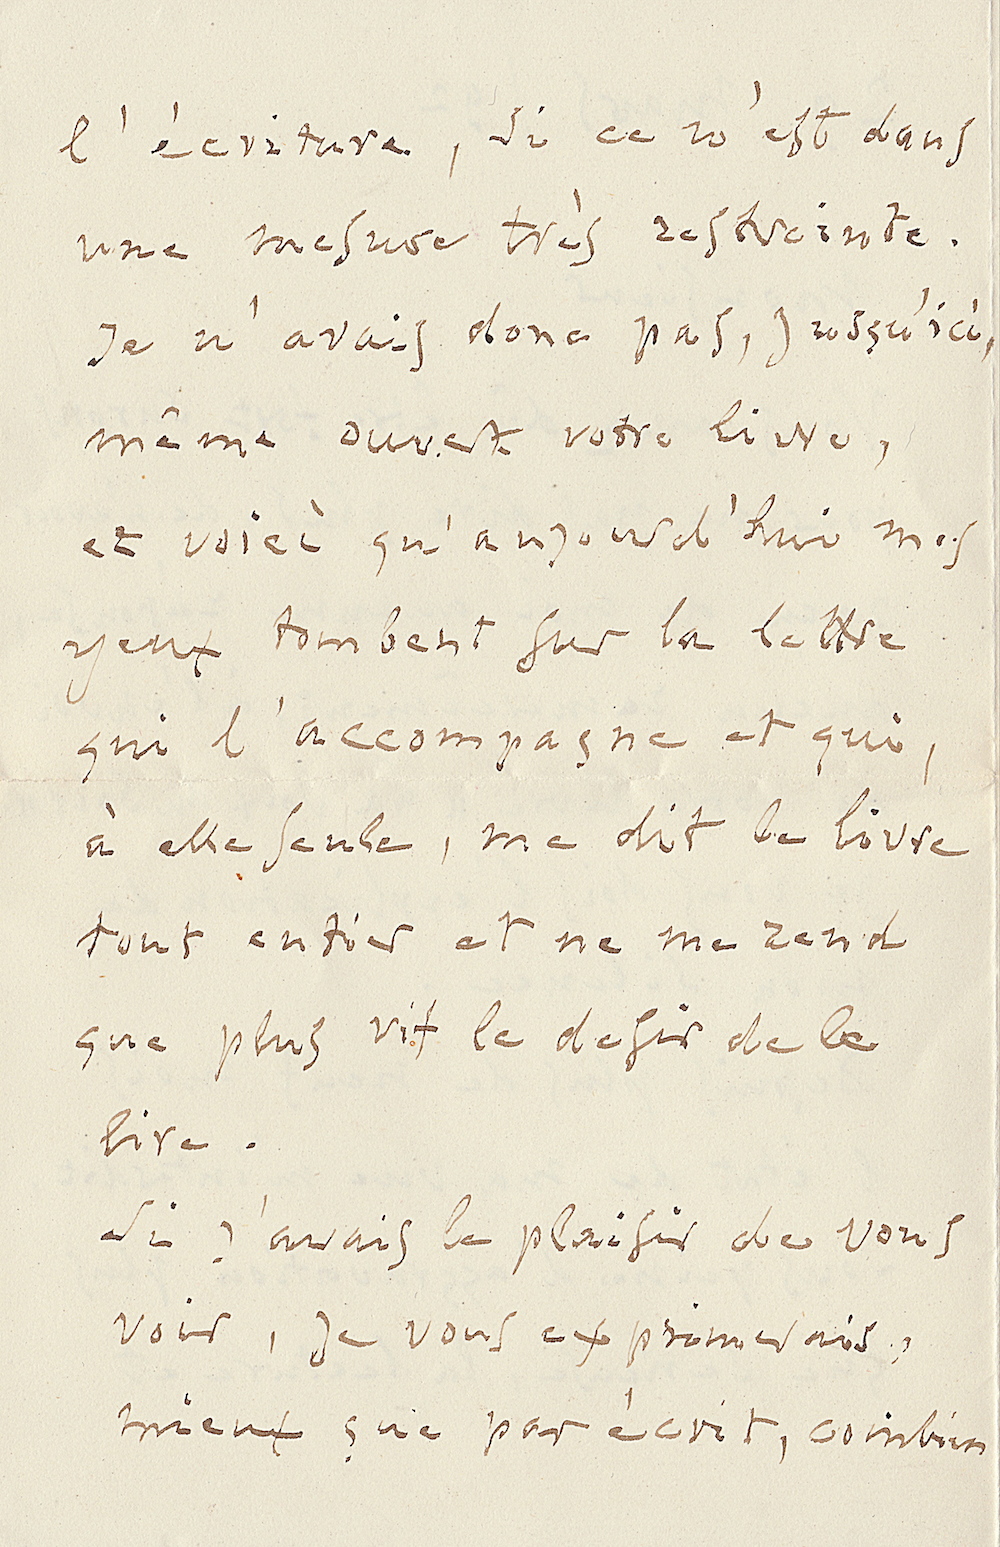 l'écriture, si ce n'est dans
une mesure très restreinte.
Je n'avais donc pas, jusqu'ici,
même ouvert votre livre,
et voici qu'aujourd'hui mes
yeux tombent sur la lettre
qui l'accompagne et qui,
à elle seule, me dit le livre
tout entier et ne me rend
que plus vif le desir de le
lire.
Si j'avais le plaisir de vous
voir, je vous exprimerais,
mieux que par écrit, combien